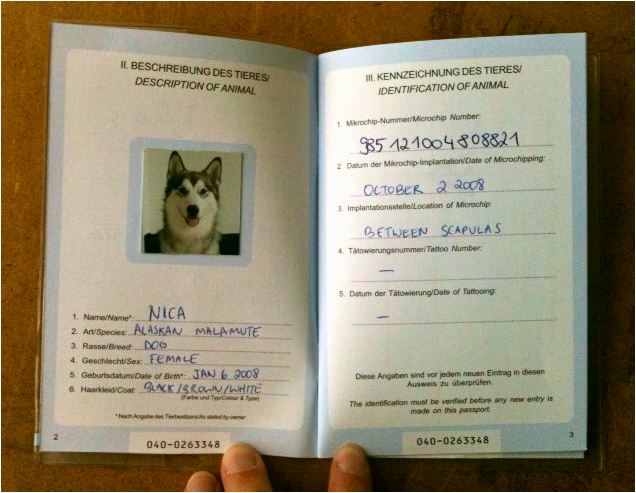 II. BESCHREIBUNG DES TIERES/
DESCRIPTION OF ANIMAL
1. Name/Name*: NICA
2. Art/Species: ALASKAN MALAMUTE
3. Rasse/Breed: DOG
4. Geschlecht/Sex: FEMALE
5. Geburtsdatum/Date of Birth*: JAN 6 2008
6. Haarkleid/Coat: BLACK/BROWN/WHITE
(Farbe und Typ/Colour & Type)
* Nach Angabe des Tierbesitzers/As stated by owner
2
040-0263348
III. KENNZEICHNUNG DES TIERES/
IDENTIFICATION OF ANIMAL
1. Mikrochip-Nummer/Microchip Number:
985121004808821
2. Datum der Mikrochip-Implantation/Date of Microchipping:
OCTOBER 2 2008
3. Implantationsstelle/Location of Microchip:
BETWEEN SCAPULAS
4. Tätowierungsnummer/Tattoo Number:
—
5. Datum der Tätowierung/Date of Tattooing:
—
Diese Angaben sind vor jedem neuen Eintrag in diesen
Ausweis zu überprüfen.
The identification must be verified before any new entry is
made on this passport.
040-0263348
3